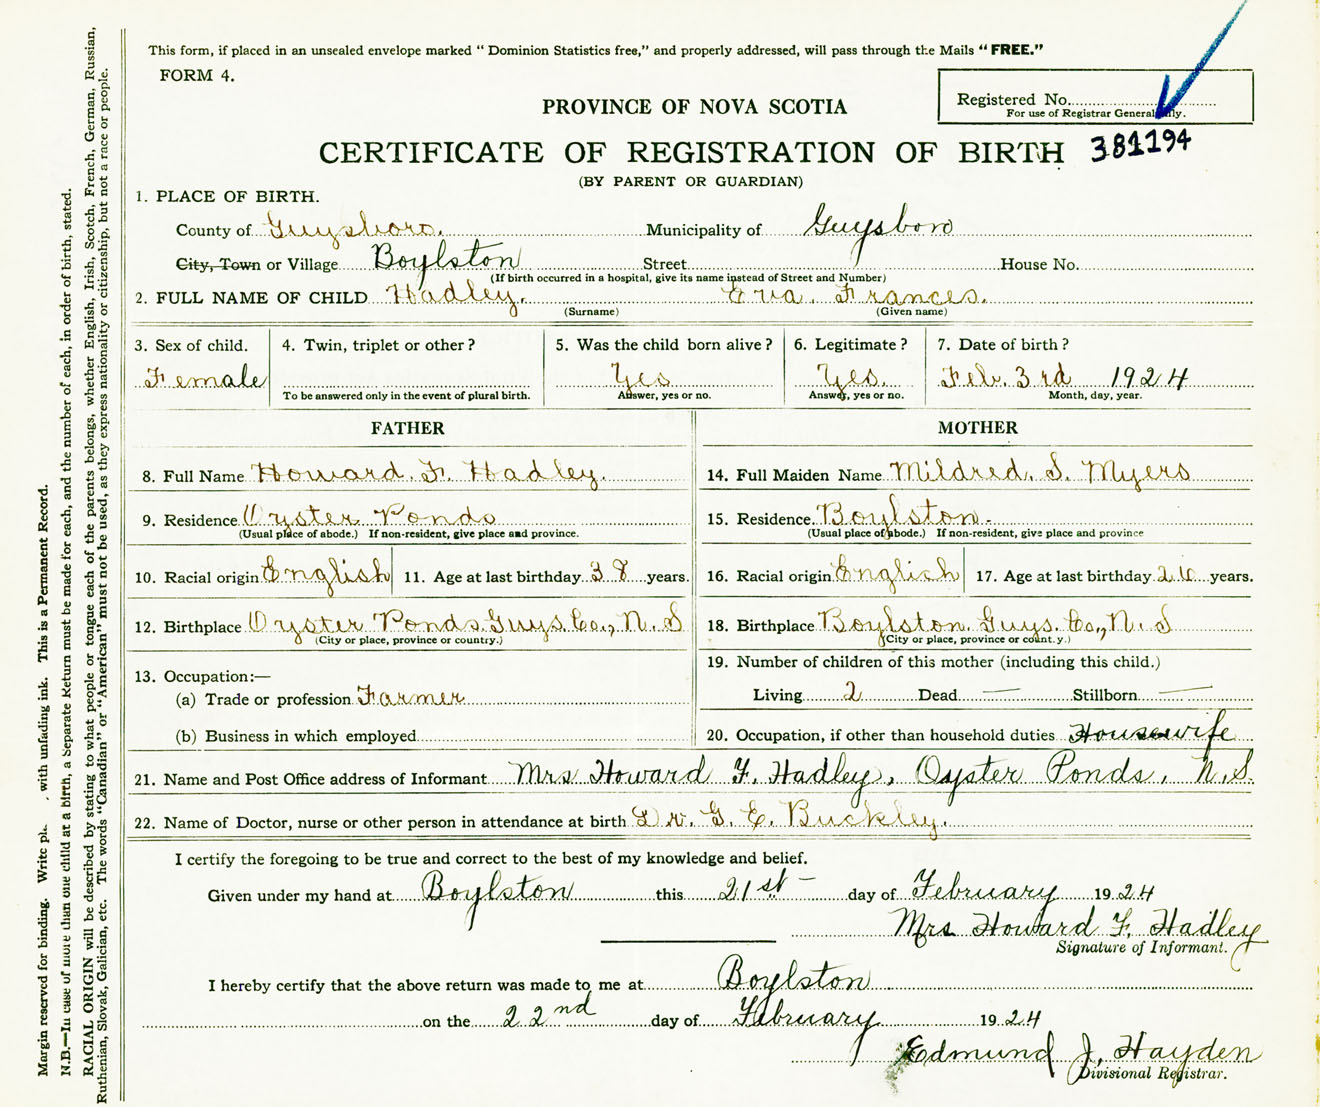 This form, if placed in an unsealed envelope marked "Dominion Statistics free," and properly addressed, will pass through the Mails "FREE."
FORM 4.
Registered No.
For use of Registrar General
PROVINCE OF NOVA SCOTIA
CERTIFICATE OF REGISTRATION OF BIRTH 381194
(BY PARENT OR GUARDIAN)
1. PLACE OF BIRTH.
County of Guysboro. Municipality of Guysboro
City, Town or Village Boylston Street House No.
(If birth occurred in a hospital, give its name instead of Street and Number)
2. FULL NAME OF CHILD Hadley, Eva. Frances.
(Surname) (Given name)
3. Sex of child. 4. Twin, triplet or other? 5. Was the child born alive? 6. Legitimate? 7. Date of birth?
Female Yes Yes. Feb. 3rd 1924
To be answered only in the event of plural birth. Answer, yes or no. Answer, yes or no. Month, day, year.
FATHER MOTHER
8. Full Name Howard. F. Hadley. 14. Full Maiden Name Mildred. S. Myers
9. Residence Oyster Ponds 15. Residence. Boylston.
(Usual place of abode.) If non-resident, give place and province. (Usual place of abode.) If non-resident, give place and province
10. Racial origin English 11. Age at last birthday 38 years. 16. Racial origin English 17. Age at last birthday years.
12. Birthplace Oyster Ponds Guys. Co., N. S 18. Birthplace Boylston. Guys. Co., N. S
(City or place, province or country.) (City or place, province or count.y.)
19. Number of children of this mother (including this child.)
13. Occupation:—
(a) Trade or profession Farmer Living 2 Dead — Stillborn —
(b) Business in which employed 20. Occupation, if other than household duties Housewife
21. Name and Post Office address of Informant Mrs Howard F. Hadley, Oyster Ponds, N.S.
22. Name of Doctor, nurse or other person in attendance at birth Dr. G. E. Buckley.
I certify the foregoing to be true and correct to the best of my knowledge and belief.
Given under my hand at Boylston this 21st day of February 1924
Mrs Howard F. Hadley
Signature of Informant.
I hereby certify that the above return was made to me at Boylston
on the 22nd day of February 1924
Edmund J. Hayden
Divisional Registrar.
Margin reserved for binding. Write with unfading ink. This is a Permanent Record.
N.B.—In case of more than one child at a birth, a Separate Return must be made for each, and the number of each, in order of birth, stated.
RACIAL ORIGIN will be described by stating to what people or tongue each of the parents belongs, whether English, Irish, Scotch, French, German, Russian,
Ruthenian, Slovak, Galician, etc. The words "Canadian" or "American" must not be used, as they express nationality or citizenship, but not a race or people.